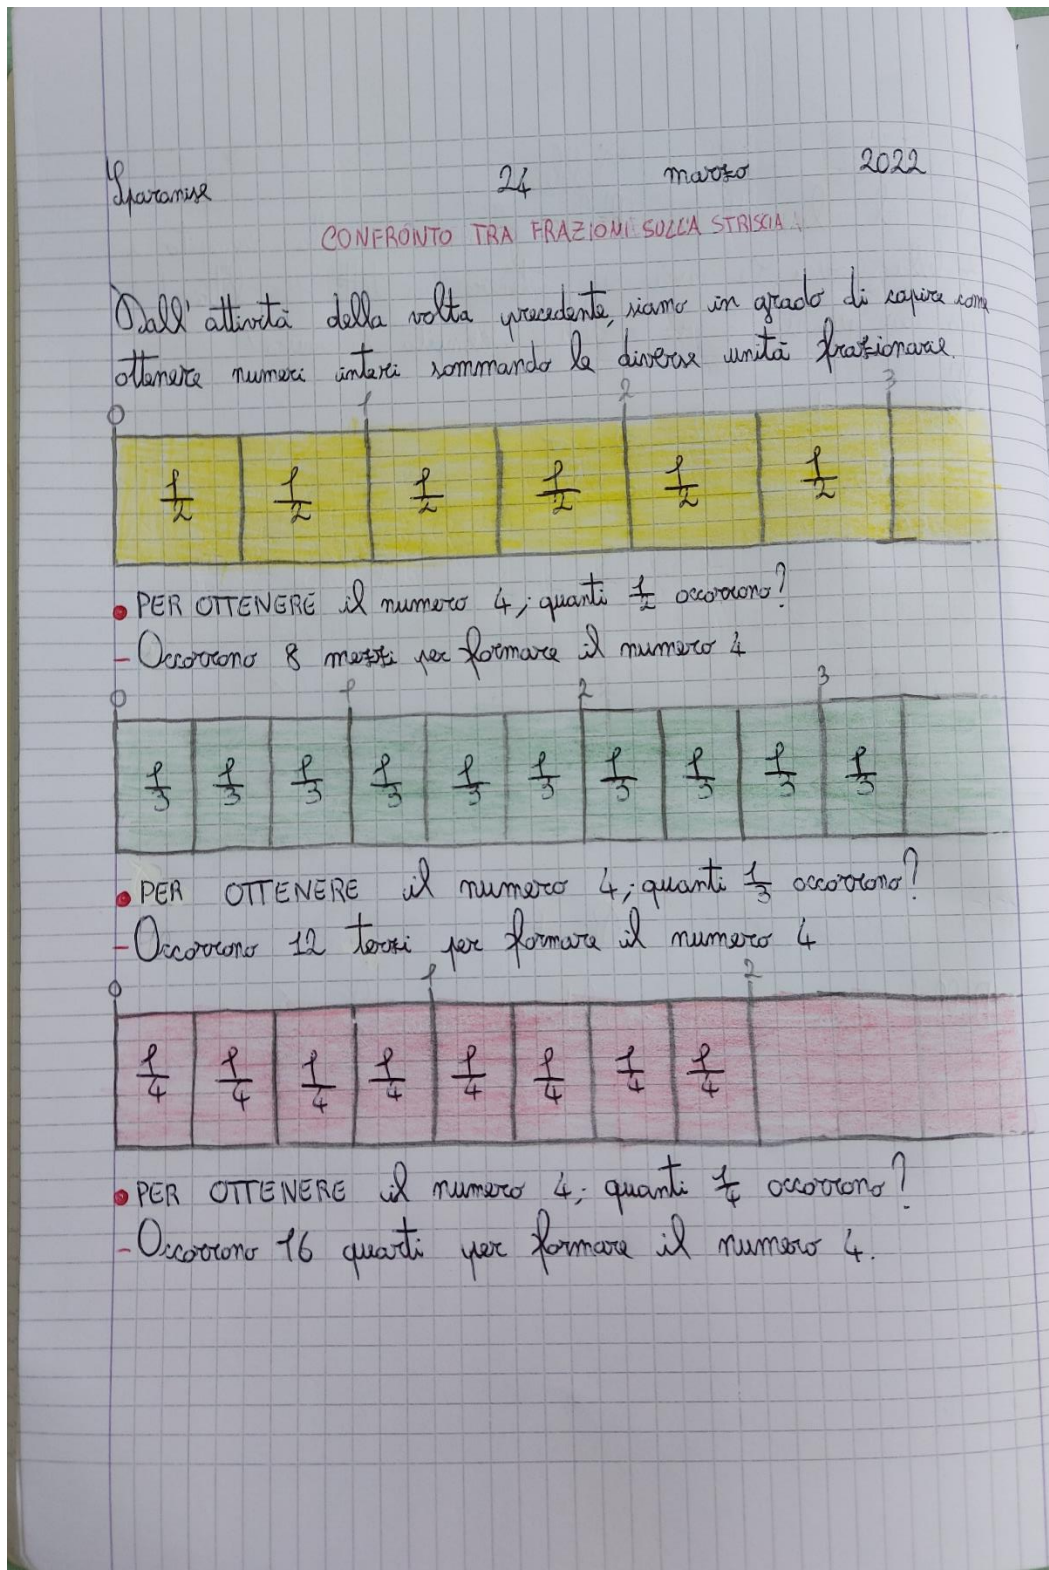 Sparanise 24 marzo 2022
CONFRONTO TRA FRAZIONI SULLA STRISCIA.
Dall'attività della volta precedente, siamo in grado di capire come
ottenere numeri interi sommando le diverse unità frazionarie.
0 1 2 3
1/2 1/2 1/2 1/2 1/2 1/2
• PER OTTENERE il numero 4; quanti 1/2 occorrono?
- Occorrono 8 mezzi per formare il numero 4
0 1 2 3
1/3 1/3 1/3 1/3 1/3 1/3 1/3 1/3 1/3 1/3
• PER OTTENERE il numero 4; quanti 1/3 occorrono?
- Occorrono 12 terzi per formare il numero 4
0 1 2
1/4 1/4 1/4 1/4 1/4 1/4 1/4 1/4
• PER OTTENERE il numero 4; quanti 1/4 occorrono?
- Occorrono 16 quarti per formare il numero 4.